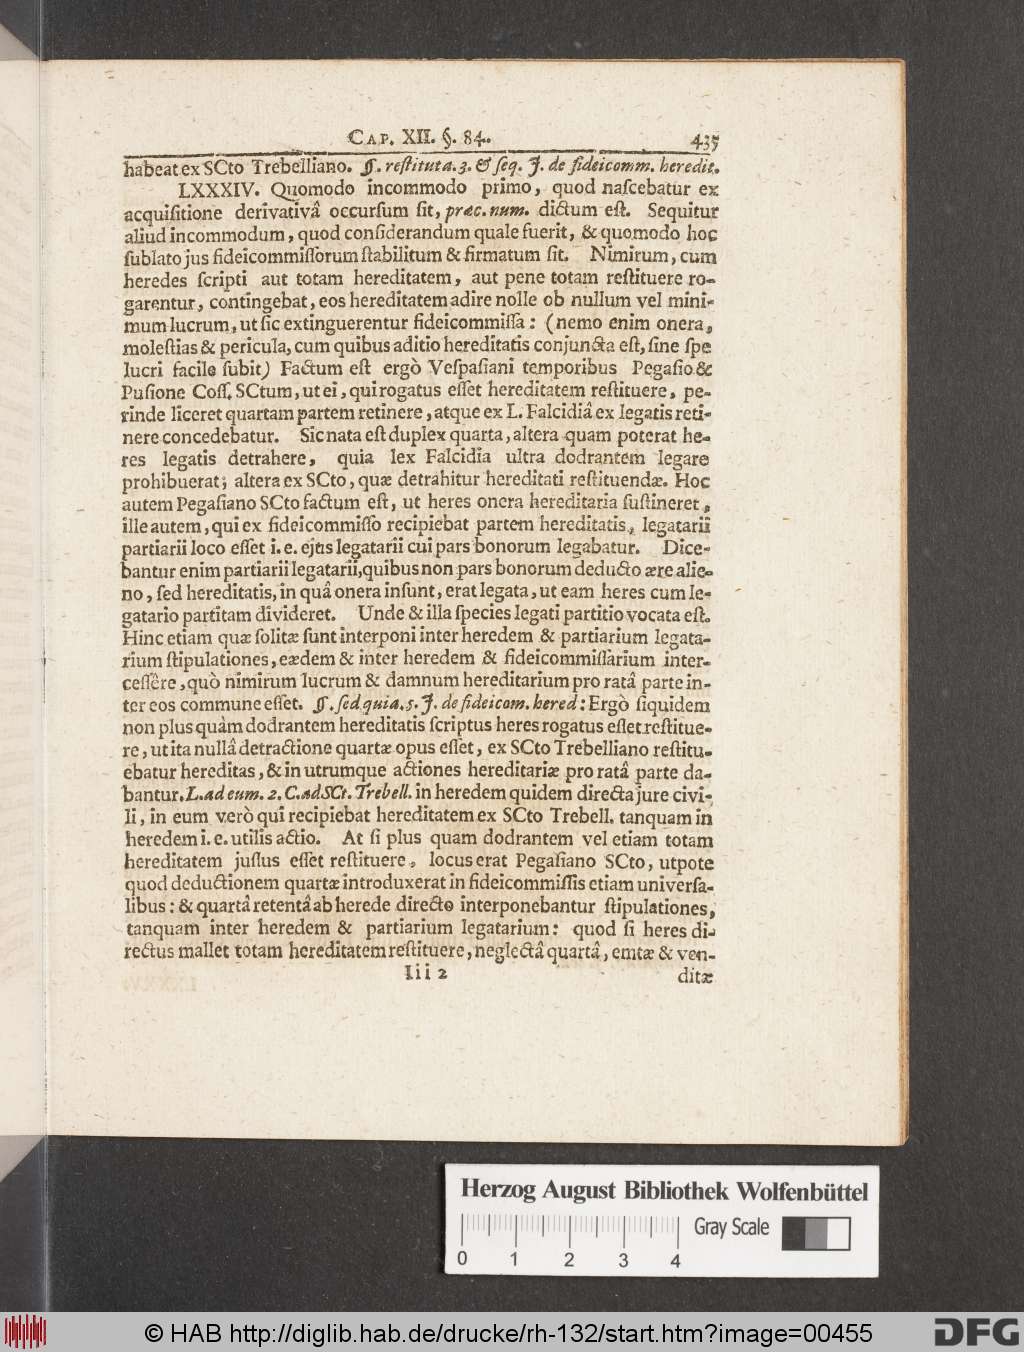 CAP. XII. §. 84. 435
habeat ex SCto Trebelliano. §. reſtituta. 3. & ſeq. J. de fideicomm. heredit.
LXXXIV. Quomodo incommodo primo, quod naſcebatur ex
acquiſitione derivativâ occurſum ſit, præc. num. dictum eſt. Sequitur
aliud incommodum, quod conſiderandum quale fuerit, & quomodo hoc
ſublato jus fideicommiſſorum ſtabilitum & firmatum ſit. Nimirum, cum
heredes ſcripti aut totam hereditatem, aut pene totam reſtituere ro-
garentur, contingebat, eos hereditatem adire nolle ob nullum vel mini-
mum lucrum, ut ſic extinguerentur fideicommiſſa: (nemo enim onera,
moleſtias & pericula, cum quibus aditio hereditatis conjuncta eſt, ſine ſpe
lucri facile ſubit) Factum eſt ergò Veſpaſiani temporibus Pegaſio &
Puſione Coſſ. SCtum, ut ei, qui rogatus eſſet hereditatem reſtituere, pe-
rinde liceret quartam partem retinere, atque ex L. Falcidiâ ex legatis reti-
nere concedebatur. Sic nata eſt duplex quarta, altera quam poterat he-
res legatis detrahere, quia lex Falcidia ultra dodrantem legare
prohibuerat; altera ex SCto, quæ detrahitur hereditati reſtituendæ. Hoc
autem Pegaſiano SCto factum eſt, ut heres onera hereditaria ſuſtineret,
ille autem, qui ex fideicommiſſo recipiebat partem hereditatis, legatarii
partiarii loco eſſet i. e. ejus legatarii cui pars bonorum legabatur. Dice-
bantur enim partiarii legatarii, quibus non pars bonorum deducto ære alie-
no, ſed hereditatis, in quâ onera inſunt, erat legata, ut eam heres cum le-
gatario partitam divideret. Unde & illa ſpecies legati partitio vocata eſt.
Hinc etiam quæ ſolitæ ſunt interponi inter heredem & partiarium legata-
rium ſtipulationes, eædem & inter heredem & fideicommiſſarium inter-
ceſſêre, quò nimirum lucrum & damnum hereditarium pro ratâ parte in-
ter eos commune eſſet. §. ſed quia. 5. J. de fideicom. hered: Ergò ſiquidem
non plus quàm dodrantem hereditatis ſcriptus heres rogatus eſſet reſtitue-
re, ut ita nullâ detractione quartæ opus eſſet, ex SCto Trebelliano reſtitu-
ebatur hereditas, & in utrumque actiones hereditariæ pro ratâ parte da-
bantur. L. ad eum. 2. C. ad SCt. Trebell. in heredem quidem directa jure civi-
li, in eum verò qui recipiebat hereditatem ex SCto Trebell. tanquam in
heredem i. e. utilis actio. At ſi plus quam dodrantem vel etiam totam
hereditatem juſſus eſſet reſtituere, locus erat Pegaſiano SCto, utpote
quod deductionem quartæ introduxerat in fideicommiſſis etiam univerſa-
libus: & quartâ retentâ ab herede directo interponebantur ſtipulationes,
tanquam inter heredem & partiarium legatarium: quod ſi heres di-
rectus mallet totam hereditatem reſtituere, neglectâ quartâ, emtæ & ven-
Iii 2 ditæ
Herzog August Bibliothek Wolfenbüttel
Gray Scale
0 1 2 3 4
© HAB http://diglib.hab.de/drucke/rh-132/start.htm?image=00455 DFG